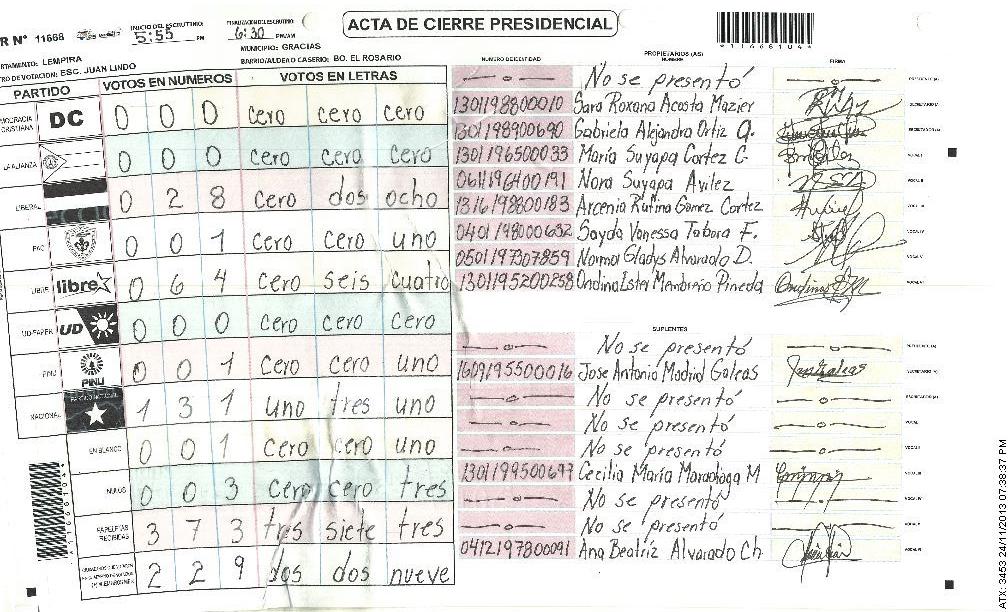 ACTA DE CIERRE PRESIDENCIAL
R N° 11668
INICIO DEL ESCRUTINIO: 5:55 PM
FINALIZACION DEL ESCRUTINIO: 6:30 PM/AM
*1166810 4*
MUNICIPIO: GRACIAS
RTAMENTO: LEMPIRA
BARRIO/ALDEA O CASERIO: BO. EL ROSARIO
TRO DE VOTACION: ESC. JUAN LINDO
PARTIDO VOTOS EN NUMEROS VOTOS EN LETRAS
MOCRACIA CRISTIANA DC 0 0 0 cero cero cero
LA ALIANZA 0 0 0 cero cero cero
LIBERAL 0 2 8 cero dos ocho
PAC 0 0 1 cero cero uno
LIBRE libre 0 6 4 cero seis cuatro
UD-FAPER UD 0 0 0 cero cero cero
PINU PINU 0 0 1 cero cero uno
NACIONAL PARTIDO NACIONAL 1 3 1 uno tres uno
EN BLANCO 0 0 1 cero cero uno
NULOS 0 0 3 cero cero tres
PAPELETAS RECIBIDAS 3 7 3 tres siete tres
2 2 9 dos dos nueve
PROPIETARIOS (AS)
NUMERO DE IDENTIDAD NOMBRE FIRMA
No se presentó PRESIDENTE (A)
1301198800010 Sara Roxana Acosta Mazier SECRETARIO (A)
1301198900690 Gabriela Alejandra Ortiz G. ESCRUTADOR (A)
1301196500033 María Suyapa Cortez G VOCAL I
0611196400191 Nora Suyapa Avilez VOCAL II
1316198800183 Arcenia Rufina Gomez Cortez VOCAL III
0401198000632 Sayda Vanessa Tabora F. VOCAL IV
0501197307859 Norma Gladys Alvarado D. VOCAL V
1301195200258 Ondina Ester Membreño Pineda VOCAL VI
SUPLENTES
No se presentó PRESIDENTE (A)
1609195500016 Jose Antonio Madrid Galeas SECRETARIO (A)
No se presentó ESCRUTADOR (A)
No se presentó VOCAL I
No se presentó VOCAL II
1301199500697 Cecilia María M VOCAL III
No se presentó VOCAL IV
No se presentó VOCAL V
0412197800091 Ana Beatriz Alvarado Ch VOCAL VI
ATX: 3453 24/11/2013 07:38:37 PM